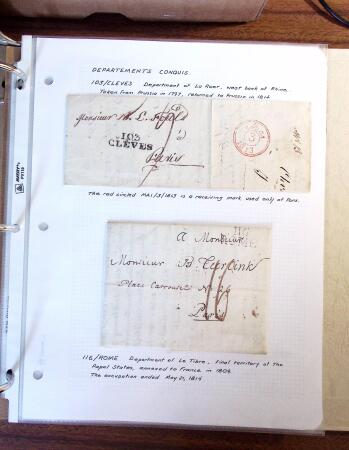 DEPARTEMENTS CONQUIS.
103/CLEVES Department of La Roer, west bank of Rhine.
Taken from Prussia in 1797, returned to Prussia in 1814.
Monsieur
à
103
CLÈVES
Paris
The red circled MAI/3/1813 is a receiving mark used only at Paris.
A Monsieur
Monsieur B
Place Carrousel No 24
Paris
116/ROME Department of Le Tibre, final territory of the
Papal States, annexed to France in 1808.
The occupation ended May 21, 1814